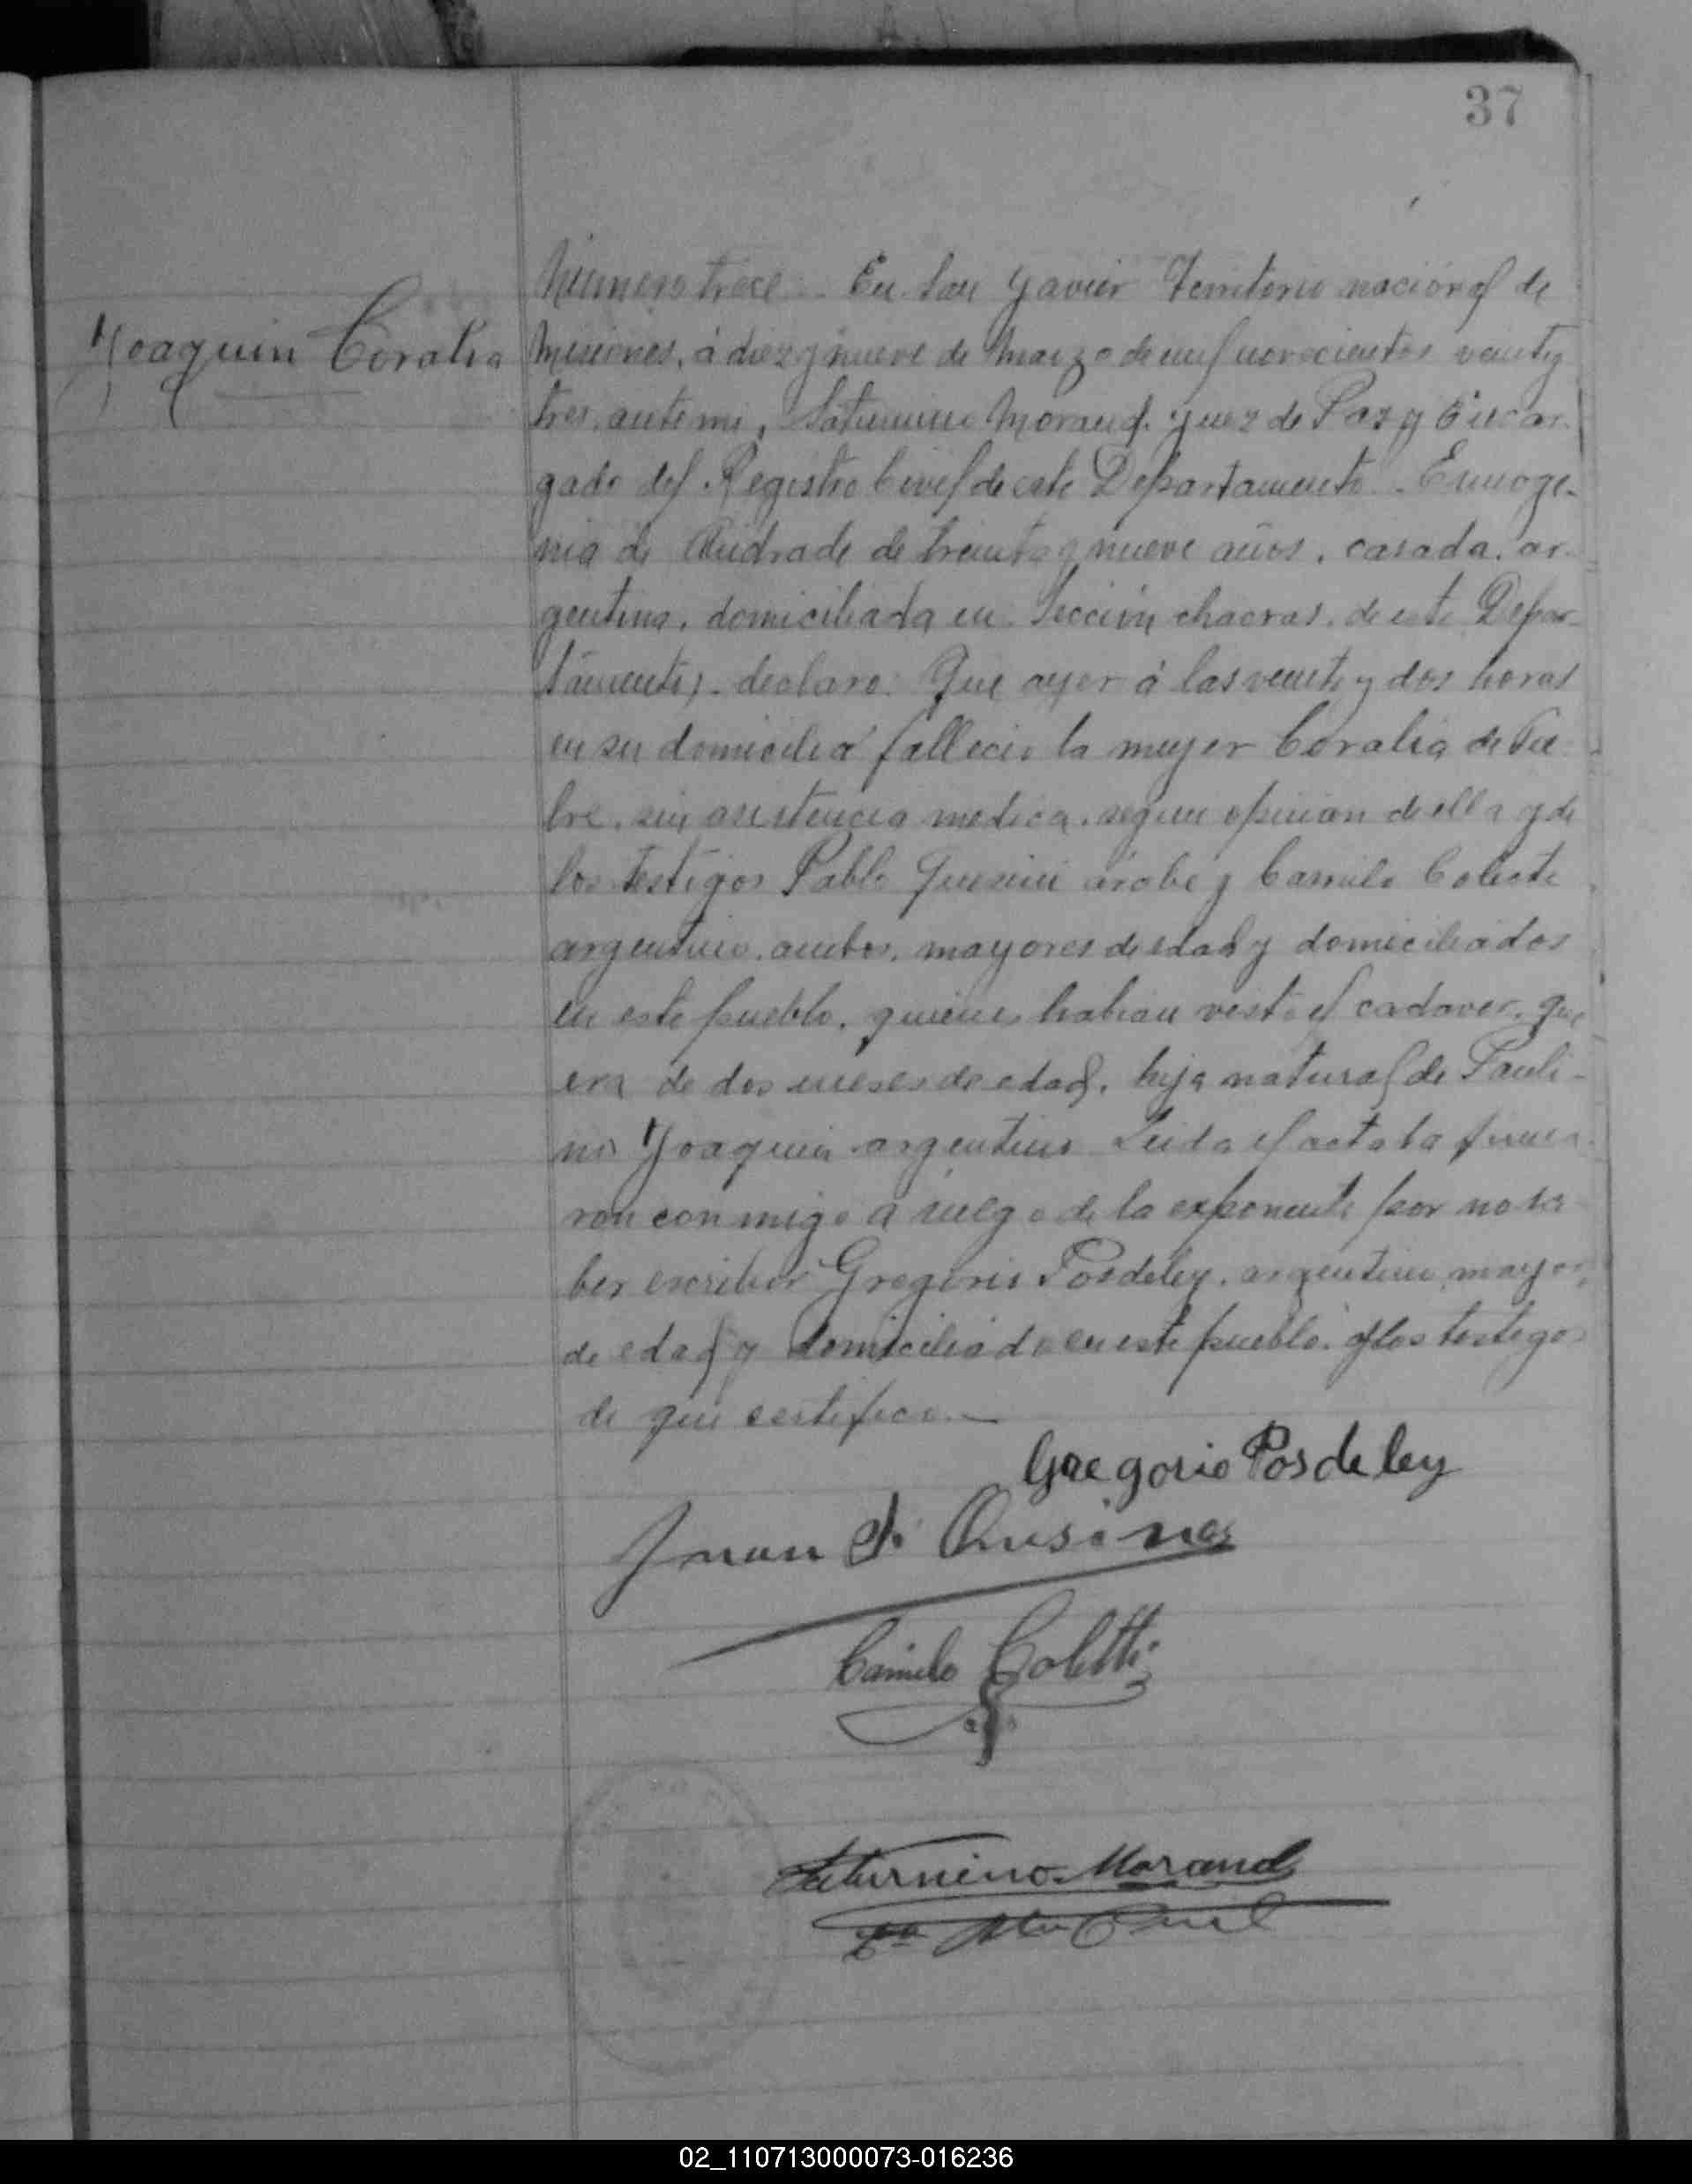 37
Joaquin Coralia
Número trece. En San Javier Territorio nacional de
Misiones, á diez y nueve de Marzo de mil novecientos veinte y
tres, ante mi, Saturnino Morand, Juez de Paz y Encar-
gado del Registro Civil de este Departamento. Ermoge-
nia de Andrade de treinta y nueve años, casada, ar-
gentina, domiciliada en Sección chacras, de este Depar-
tamento, declaro: Que ayer á las veinte y dos horas
en su domicilio falleció la mujer Coralia de Fie-
bre, sin asistencia medica, segun opinion de ella y de
los testigos Pablo árabe y Camilo
argentino, ambos, mayores de edad y domiciliados
en este pueblo, quienes habian visto el cadaver, que
era de dos meses de edad, hija natural de Pauli-
no Joaquin argentino Leida el acta la firma-
ron conmigo a ruego de la exponente por no sa-
ber escribir Gregorio Posdeley, argentino, mayor
de edad y domiciliado en este pueblo, y los testigos
de que certifico.—
Gregorio Posdeley
Juan
Camilo Coletti
Saturnino Morand
02_110713000073-016236